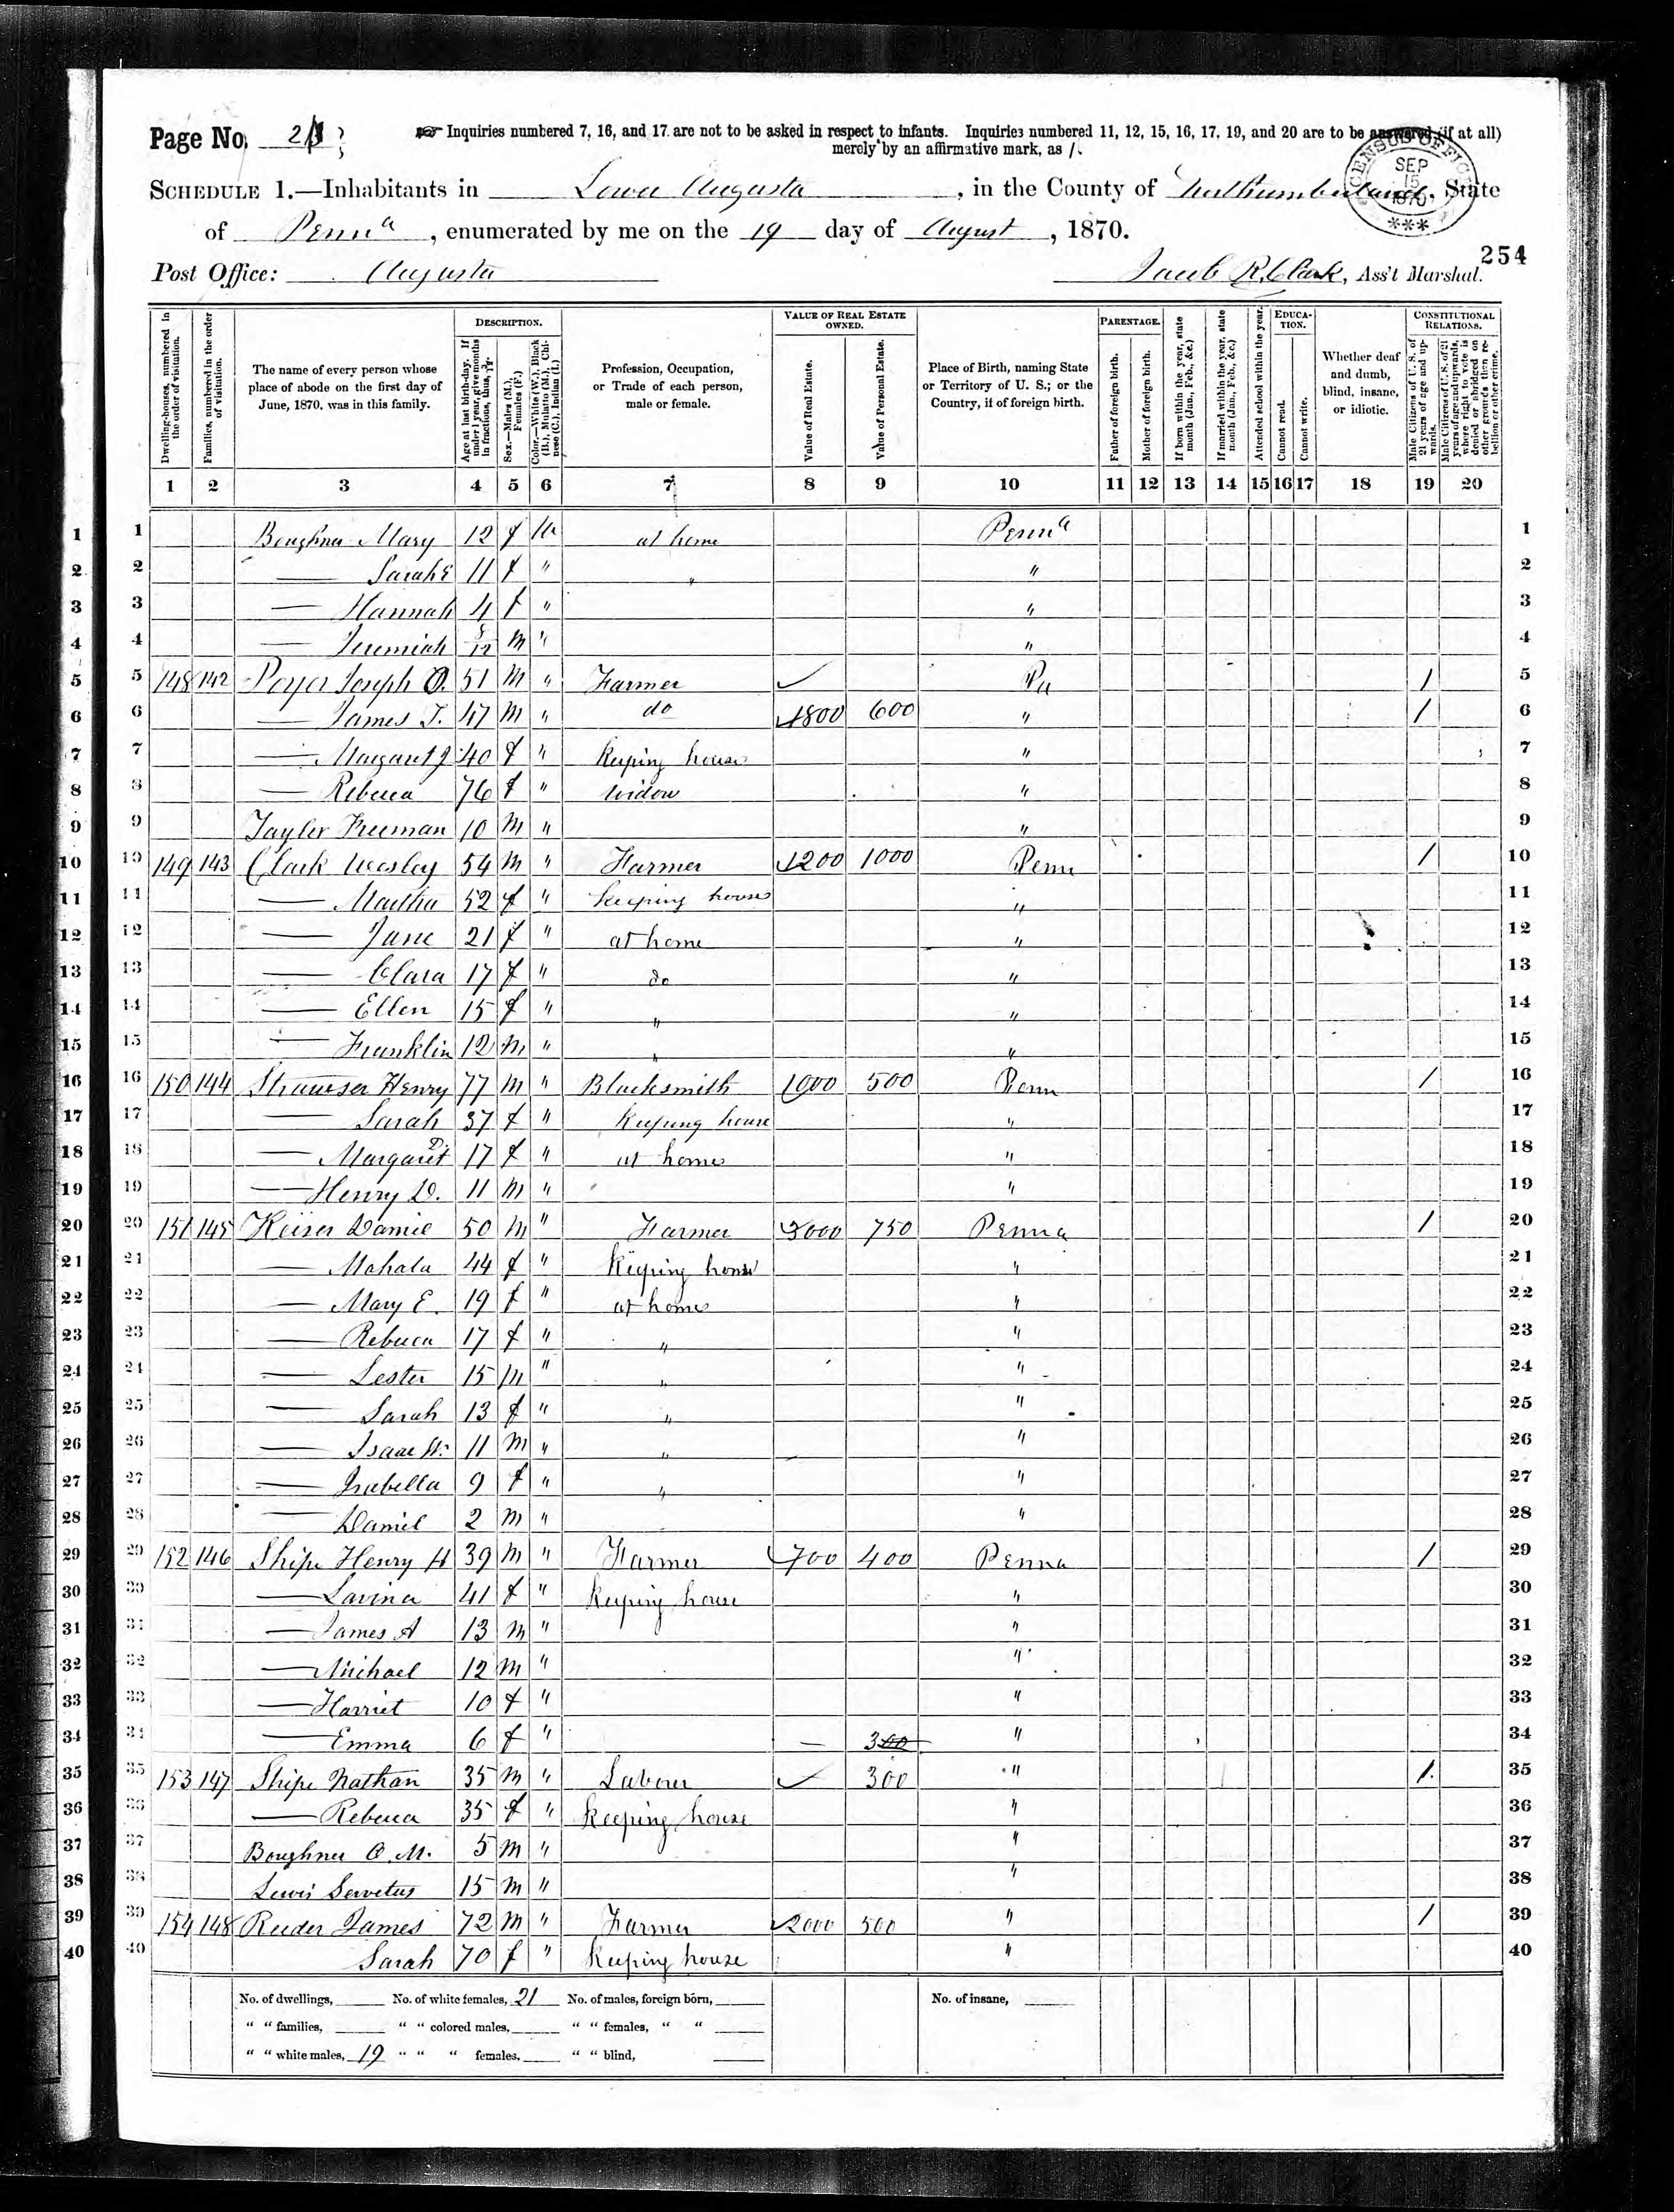 Page No. 21
☞ Inquiries numbered 7, 16, and 17 are not to be asked in respect to infants. Inquiries numbered 11, 12, 15, 16, 17, 19, and 20 are to be answered (if at all)
merely by an affirmative mark, as /.
SCHEDULE 1.—Inhabitants in Lower Augusta, in the County of Northumberland, State
of Penna, enumerated by me on the 19 day of August, 1870.
CENSUS OFFICE SEP 15 1870 ***
254
Post Office: Augusta Jacob R. Clark, Ass't Marshal.
Dwelling-houses, numbered in the order of visitation.
Families, numbered in the order of visitation.
The name of every person whose place of abode on the first day of June, 1870, was in this family.
DESCRIPTION.
Age at last birth-day. If under 1 year, give months in fractions, thus, 3/12.
Sex.—Males (M.), Females (F.)
Color.—White (W.), Black (B.), Mulatto (M.), Chinese (C.), Indian (I.)
Profession, Occupation, or Trade of each person, male or female.
VALUE OF REAL ESTATE OWNED.
Value of Real Estate.
Value of Personal Estate.
Place of Birth, naming State or Territory of U. S.; or the Country, if of foreign birth.
PARENTAGE.
Father of foreign birth.
Mother of foreign birth.
If born within the year, state month (Jan., Feb., &c.)
If married within the year, state month (Jan., Feb., &c.)
Attended school within the year.
EDUCATION.
Cannot read.
Cannot write.
Whether deaf and dumb, blind, insane, or idiotic.
CONSTITUTIONAL RELATIONS.
Male Citizens of U. S. of 21 years of age and upwards.
Male Citizens of U. S. of 21 years of age and upwards, where right to vote is denied or abridged on other grounds than rebellion or other crime.
1 2 3 4 5 6 7 8 9 10 11 12 13 14 15 16 17 18 19 20
1 1 Boughner Mary 12 f W at home Penna 1
2 2 — Sarah E 11 f " " " 2
3 3 — Hannah 4 f " " 3
4 4 — Jeremiah 8/12 M " " 4
5 5 148 142 Joseph O. 51 M " Farmer ✓ Pa / 5
6 6 — James T. 47 M " do 1800 600 " / 6
7 7 — Margaret J 40 f " Keeping house " 7
8 8 — Rebecca 76 f " Widow " 8
9 9 Tayler Freeman 10 M " " 9
10 10 149 143 Clark Wesley 54 M " Farmer 1200 1000 Penn / 10
11 11 — Martha 52 f " Keeping house " 11
12 12 — Jane 21 f " at home " 12
13 13 — Clara 17 f " do " 13
14 14 — Ellen 15 f " " " 14
15 15 — Franklin 12 M " " " 15
16 16 150 144 Strawser Henry 77 M " Blacksmith 1000 500 Penn / 16
17 17 — Sarah 37 f " Keeping house " 17
18 18 — Margaret D. 17 f " at home " 18
19 19 — Henry D. 11 M " " 19
20 20 151 145 Keiser Daniel 50 M " Farmer 3000 750 Penna / 20
21 21 — Mahala 44 f " Keeping house " 21
22 22 — Mary E. 19 f " at home " 22
23 23 — Rebecca 17 f " " " 23
24 24 — Lester 15 M " " " 24
25 25 — Sarah 13 f " " " 25
26 26 — Isaac 11 M " " " 26
27 27 — Isabella 9 f " " " 27
28 28 — Daniel 2 M " " 28
29 29 152 146 Shipe Henry H 39 M " Farmer 700 400 Penna / 29
30 30 — Lavina 41 f " Keeping house " 30
31 31 — James A 13 M " " 31
32 32 — Michael 12 M " " 32
33 33 — Harriet 10 f " " 33
34 34 — Emma 6 f " — 300 " 34
35 35 153 147 Shipe Nathan 35 M " Labour ✓ 300 " / 35
36 36 — Rebecca 35 f " Keeping house " 36
37 37 Boughner O. M. 5 M " " 37
38 38 Lewis Servetus 15 M " " 38
39 39 154 148 Reeder James 72 M " Farmer 2000 500 " / 39
40 40 Sarah 70 f " Keeping house " 40
No. of dwellings, No. of white females, 21 No. of males, foreign born, No. of insane,
" " families, " " colored males, " " females, " "
" " white males, 19 " " " females, " " blind,